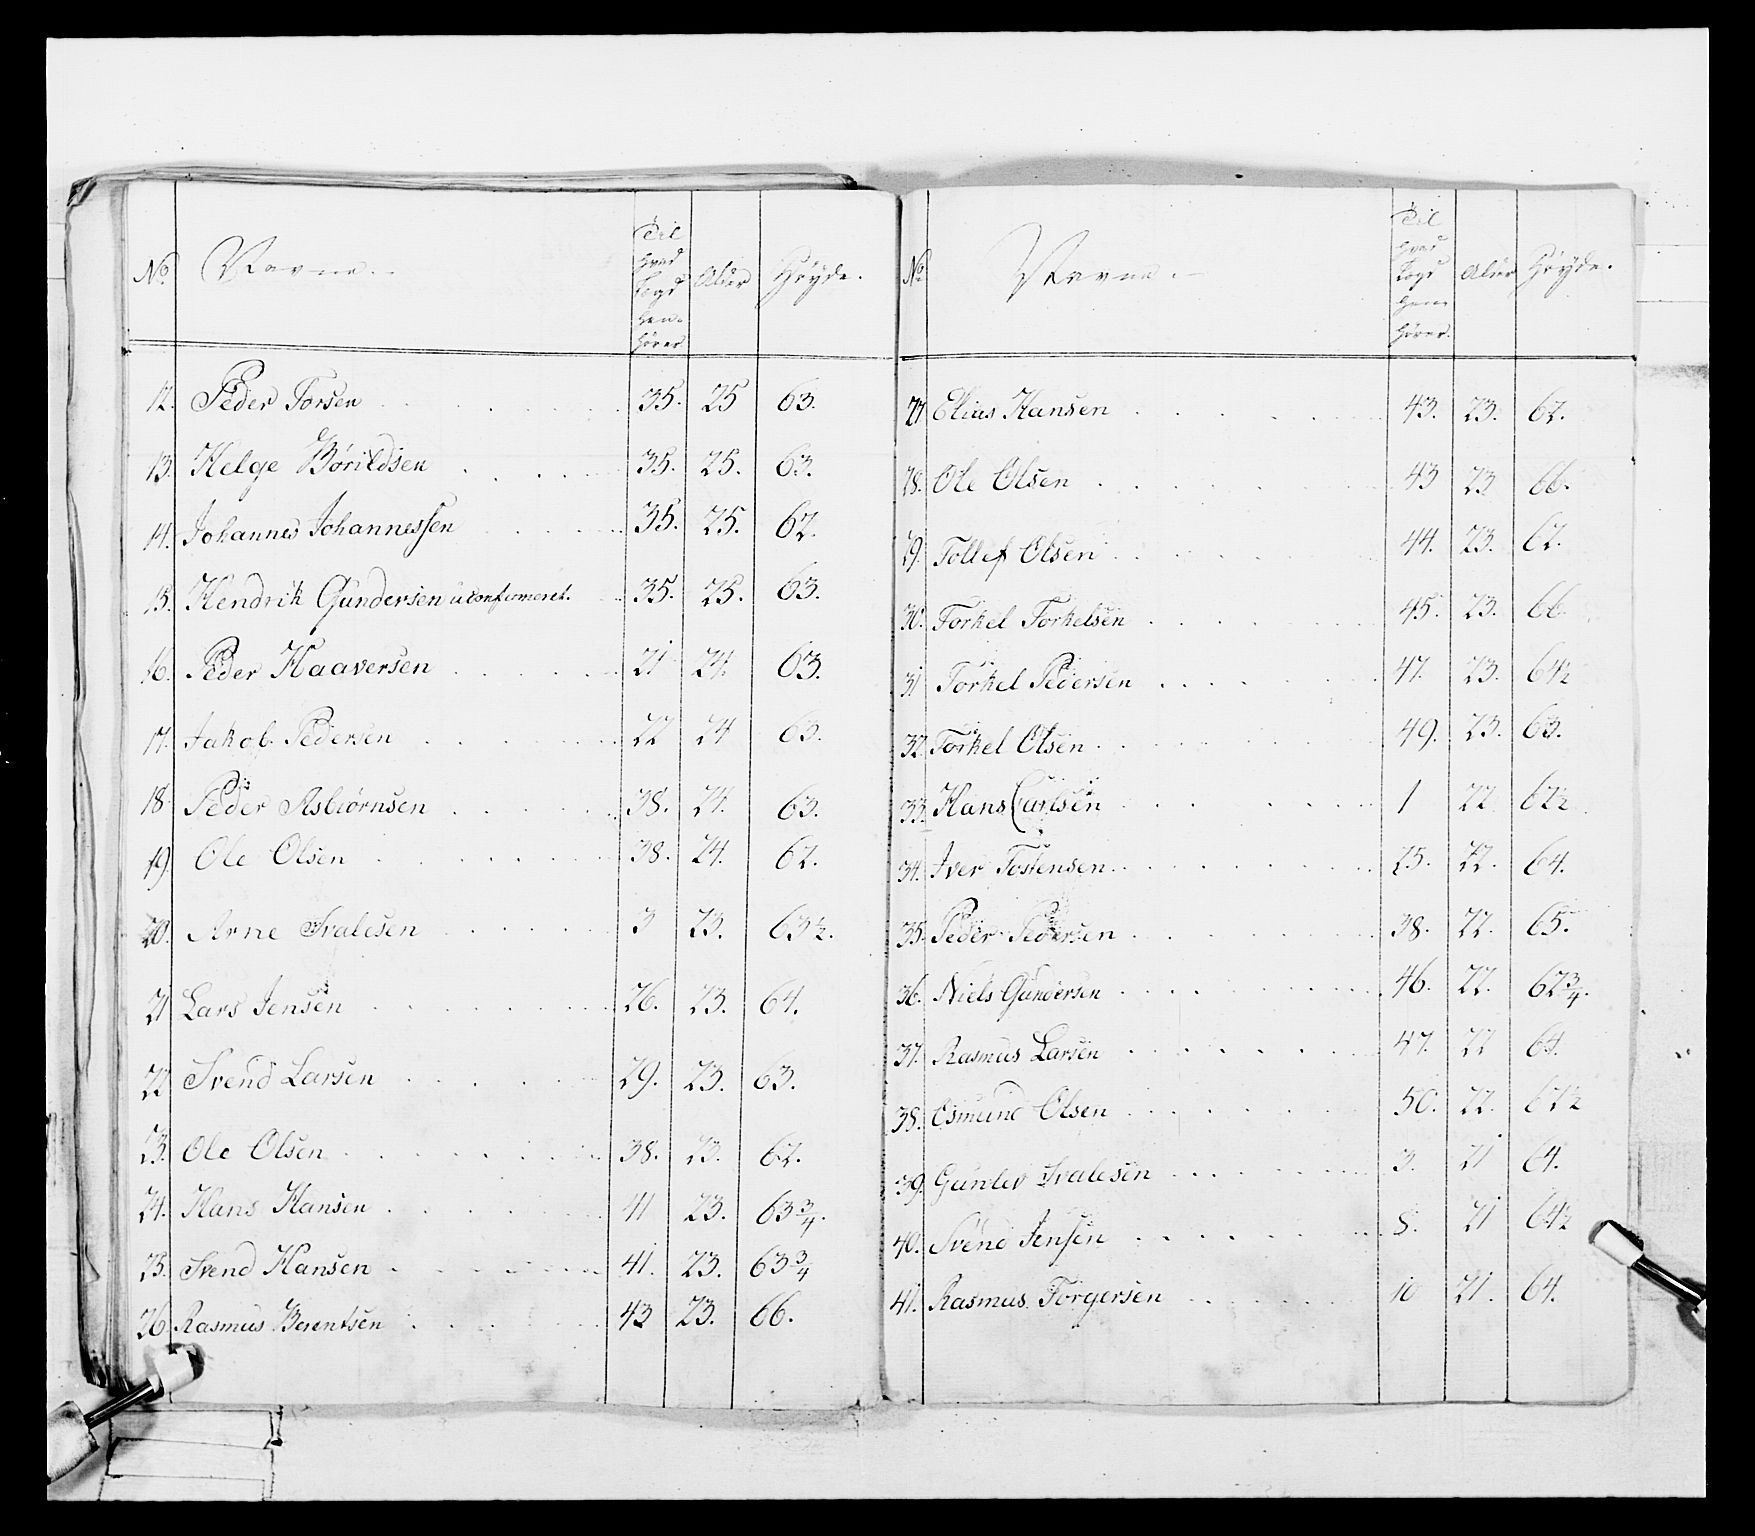 No. Navne. Til hvad Lægd hen hører Alder Høyde.
12. Peder Torsen 35. 25 63.
13. Helge Børildsen 35. 25. 63.
14. Johannes Johannessen 35. 25. 62.
15. Hendrik Gundersen uconfirmeret. 35. 25. 63.
16. Peder Haaversen 21 24. 63.
17. Jakob Pedersen 22 24 63.
18 Peder Asbiørnsen 38. 24. 63.
19. Ole Olsen 38. 24. 62.
20. Arne Svalesen 3 23. 63½.
21 Lars Jensen 26. 23. 64.
22 Svend Larsen 29. 23. 63.
23. Ole Olsen 38. 23. 62.
24. Hans Hansen 41 23. 63¾.
25. Svend Hansen 41. 23. 63¾
26 Rasmus Berentsen 43 23. 66.
No. Navne. Til hvad Lægd hen hører. Alder Høyde.
27 Elias Hansen 43. 23. 62.
28. Ole Olsen 43 23 66.
29. Tollef Olsen 44. 23. 62.
30. Torkel Torkelsen 45. 23. 66
31 Torkel Pedersen 47. 23. 64½
32 Torkel Olsen 49. 23. 63.
33. Hans Carlsen 1 22 62½
34. Iver Tostensen 25. 22. 64.
35. Peder Pedersen 38. 22. 65.
36. Niels Gundersen 46. 22. 62¾.
37. Rasmus Larsen 47. 22 64.
38. Osmund Olsen 50. 22. 62½
39. Gunlev Svalesen 3. 21 64.
40. Svend Jensen 8. 21 64½
41. Rasmus Torgersen 10 21. 64.